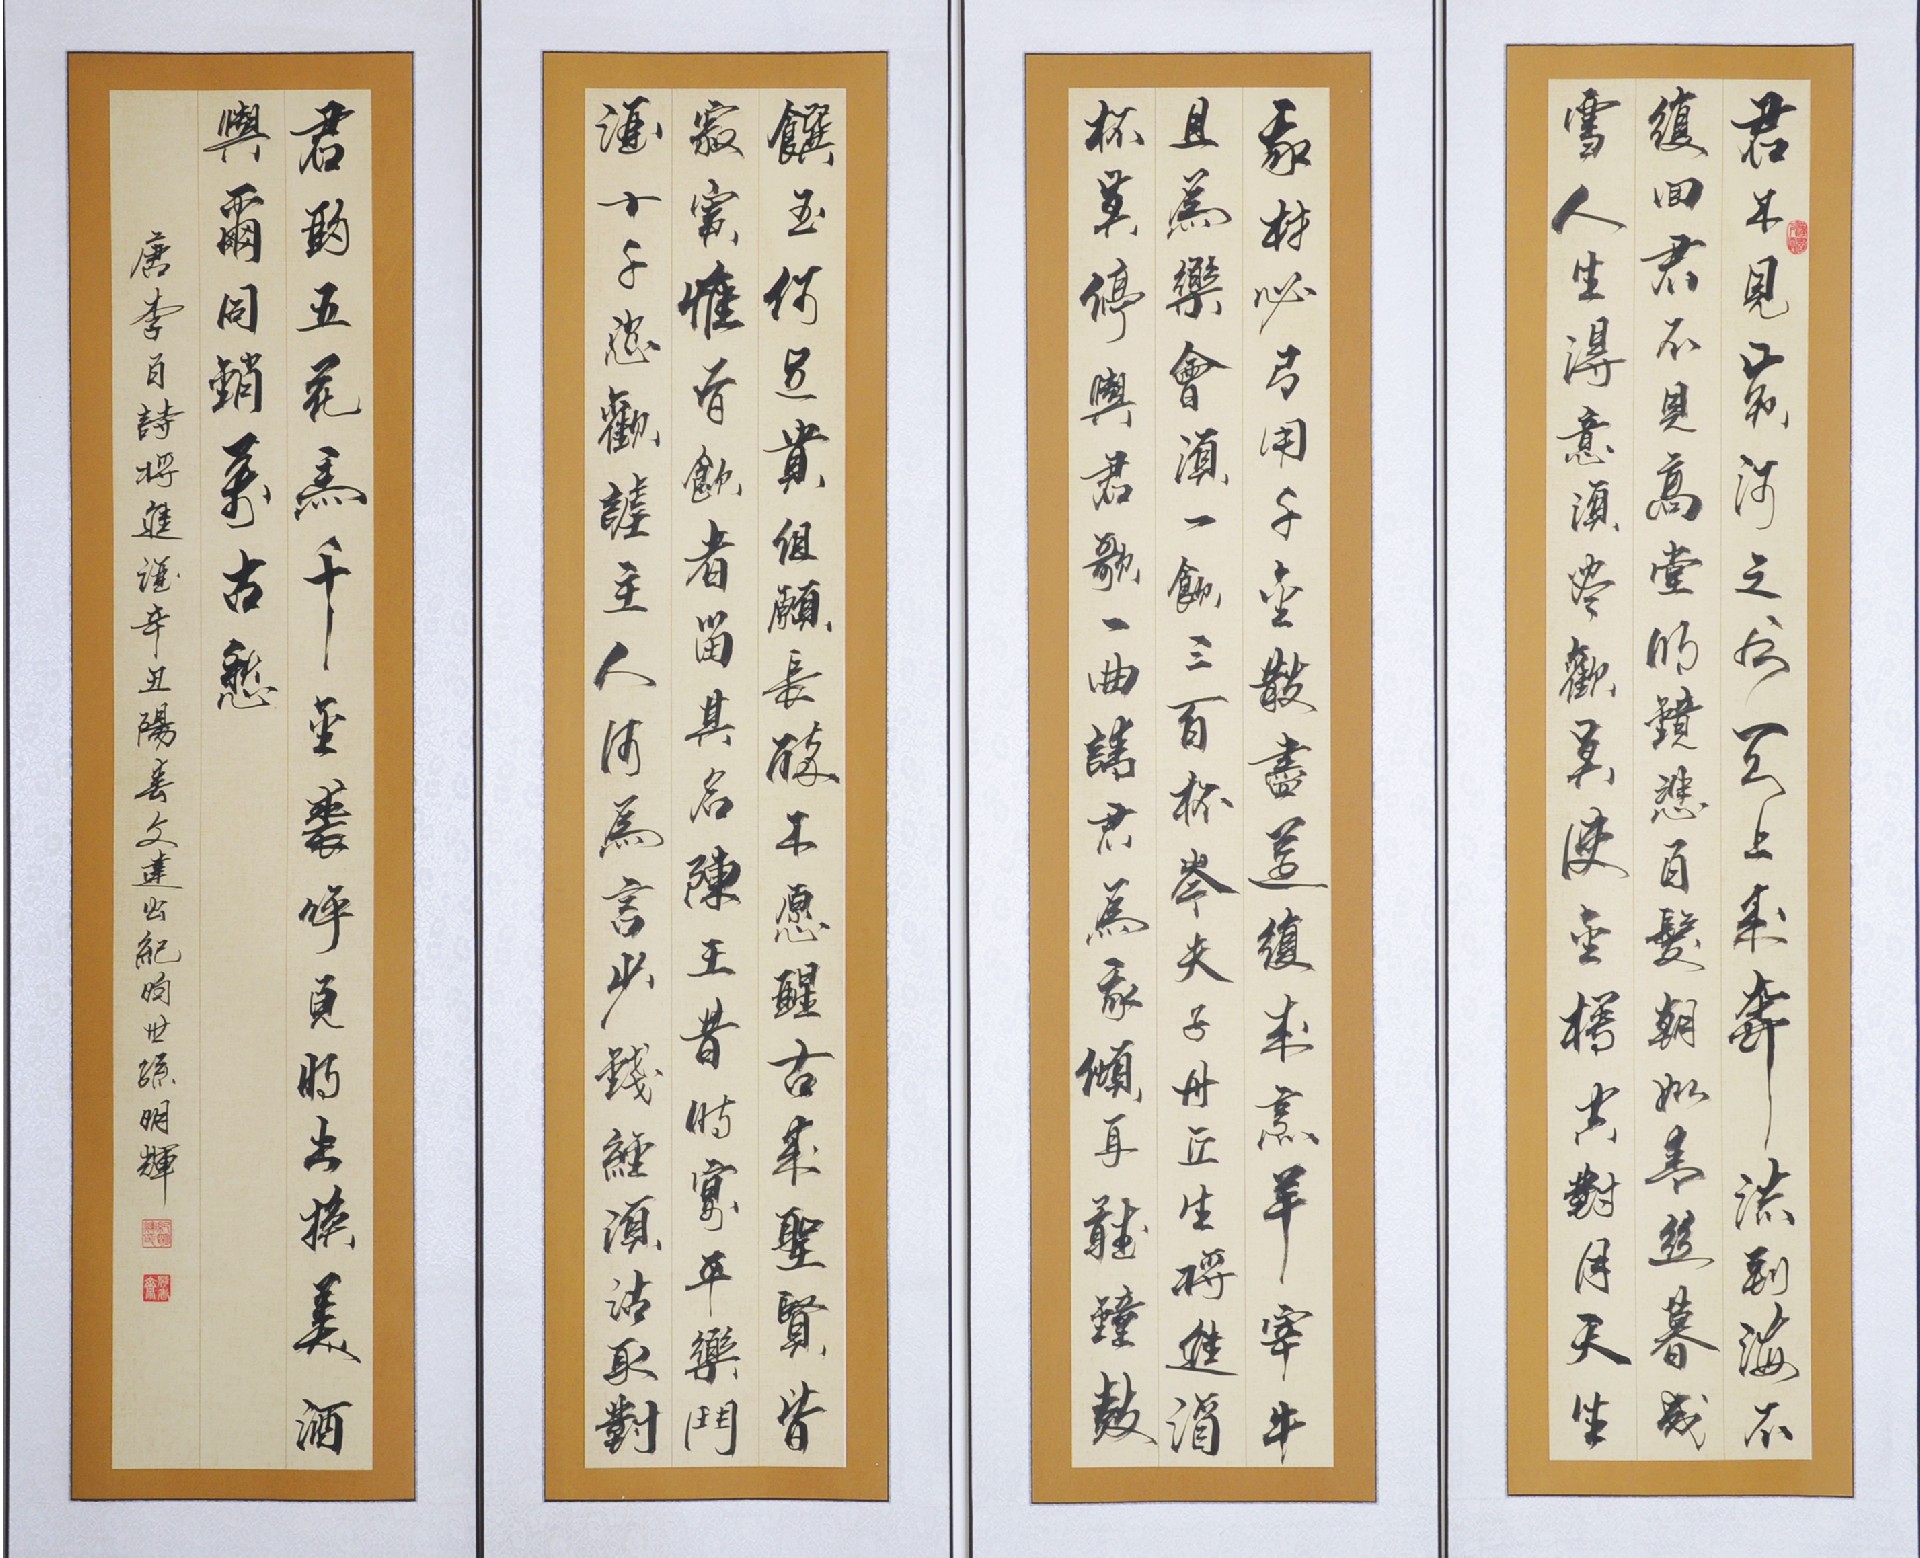 君不見黃河之水天上來奔流到海不
復回君不見高堂明鏡悲白髮朝如青絲暮成
雪人生得意須盡歡莫使金樽空對月天生
我材必有用千金散盡還復來烹羊宰牛
且為樂會須一飲三百杯岑夫子丹丘生將進酒
杯莫停與君歌一曲請君為我傾耳聽鐘鼓
饌玉何足貴但願長醉不愿醒古來聖賢皆
寂寞惟有飲者留其名陳王昔時宴平樂鬥
酒十千恣歡謔主人何為言少錢經須沽取對
君酌五花馬千金裘呼兒將出換美酒
與爾同銷萬古愁
唐李白詩將進酒辛丑陽春文達公紀昀世孫明輝